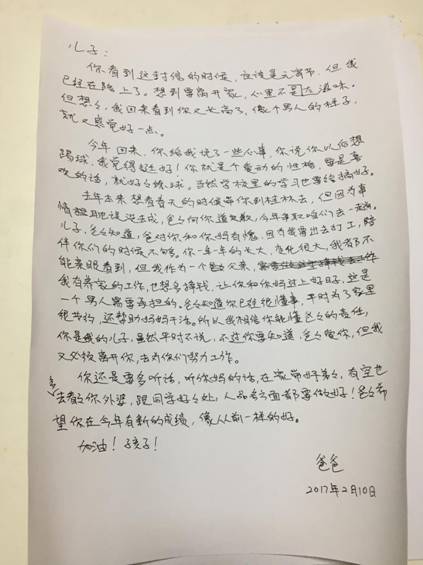 儿子：
你看到这封信的时候，应该是元宵节，但我
已经在路上了。想到要离开家，心里不是滋味。
但想想，我回来看到你又长高了，像个男人的样子，
就又感觉好一点。
今年回来，你给我说了一些小事，你说你以后想
踢球，我觉得挺好！你就是个爱动的性格，要是喜
欢的话，就好好练球。当然学校里的学习也要给搞好。
去年出来想着春天的时候带你到桂林去，但因为事
情担耽误没去成，爸爸向你道歉，今年争取咱们去一起。
儿子，爸爸知道，爸对你和你妈有愧，因为我要出去打工，陪
伴你们的时候不够。你一年一年的长大，变化很大，我看了不
能亲眼看到，但我作为一个父亲，
我有养家的工作，也想多挣钱，让你和你妈过上好日子，这是
一个男人需要承担的。爸爸知道你已经很懂事，平时为了家里
很节约，还帮助妈妈干活。所以我相信你能懂爸爸的责任，
你是我的儿子，虽然平时不说，不过你要知道，爸爸爱你，但我
又必须离开你，去为你们努力工作。
你还是要多听话，听你妈的话，在家带好弟弟，有空也
多去看看你外婆，跟同学好好处，人品各方面都要做好！爸爸希
望你在今年有新的成绩，像从前一样的好。
加油！孩子！
爸爸
2017年2月10日